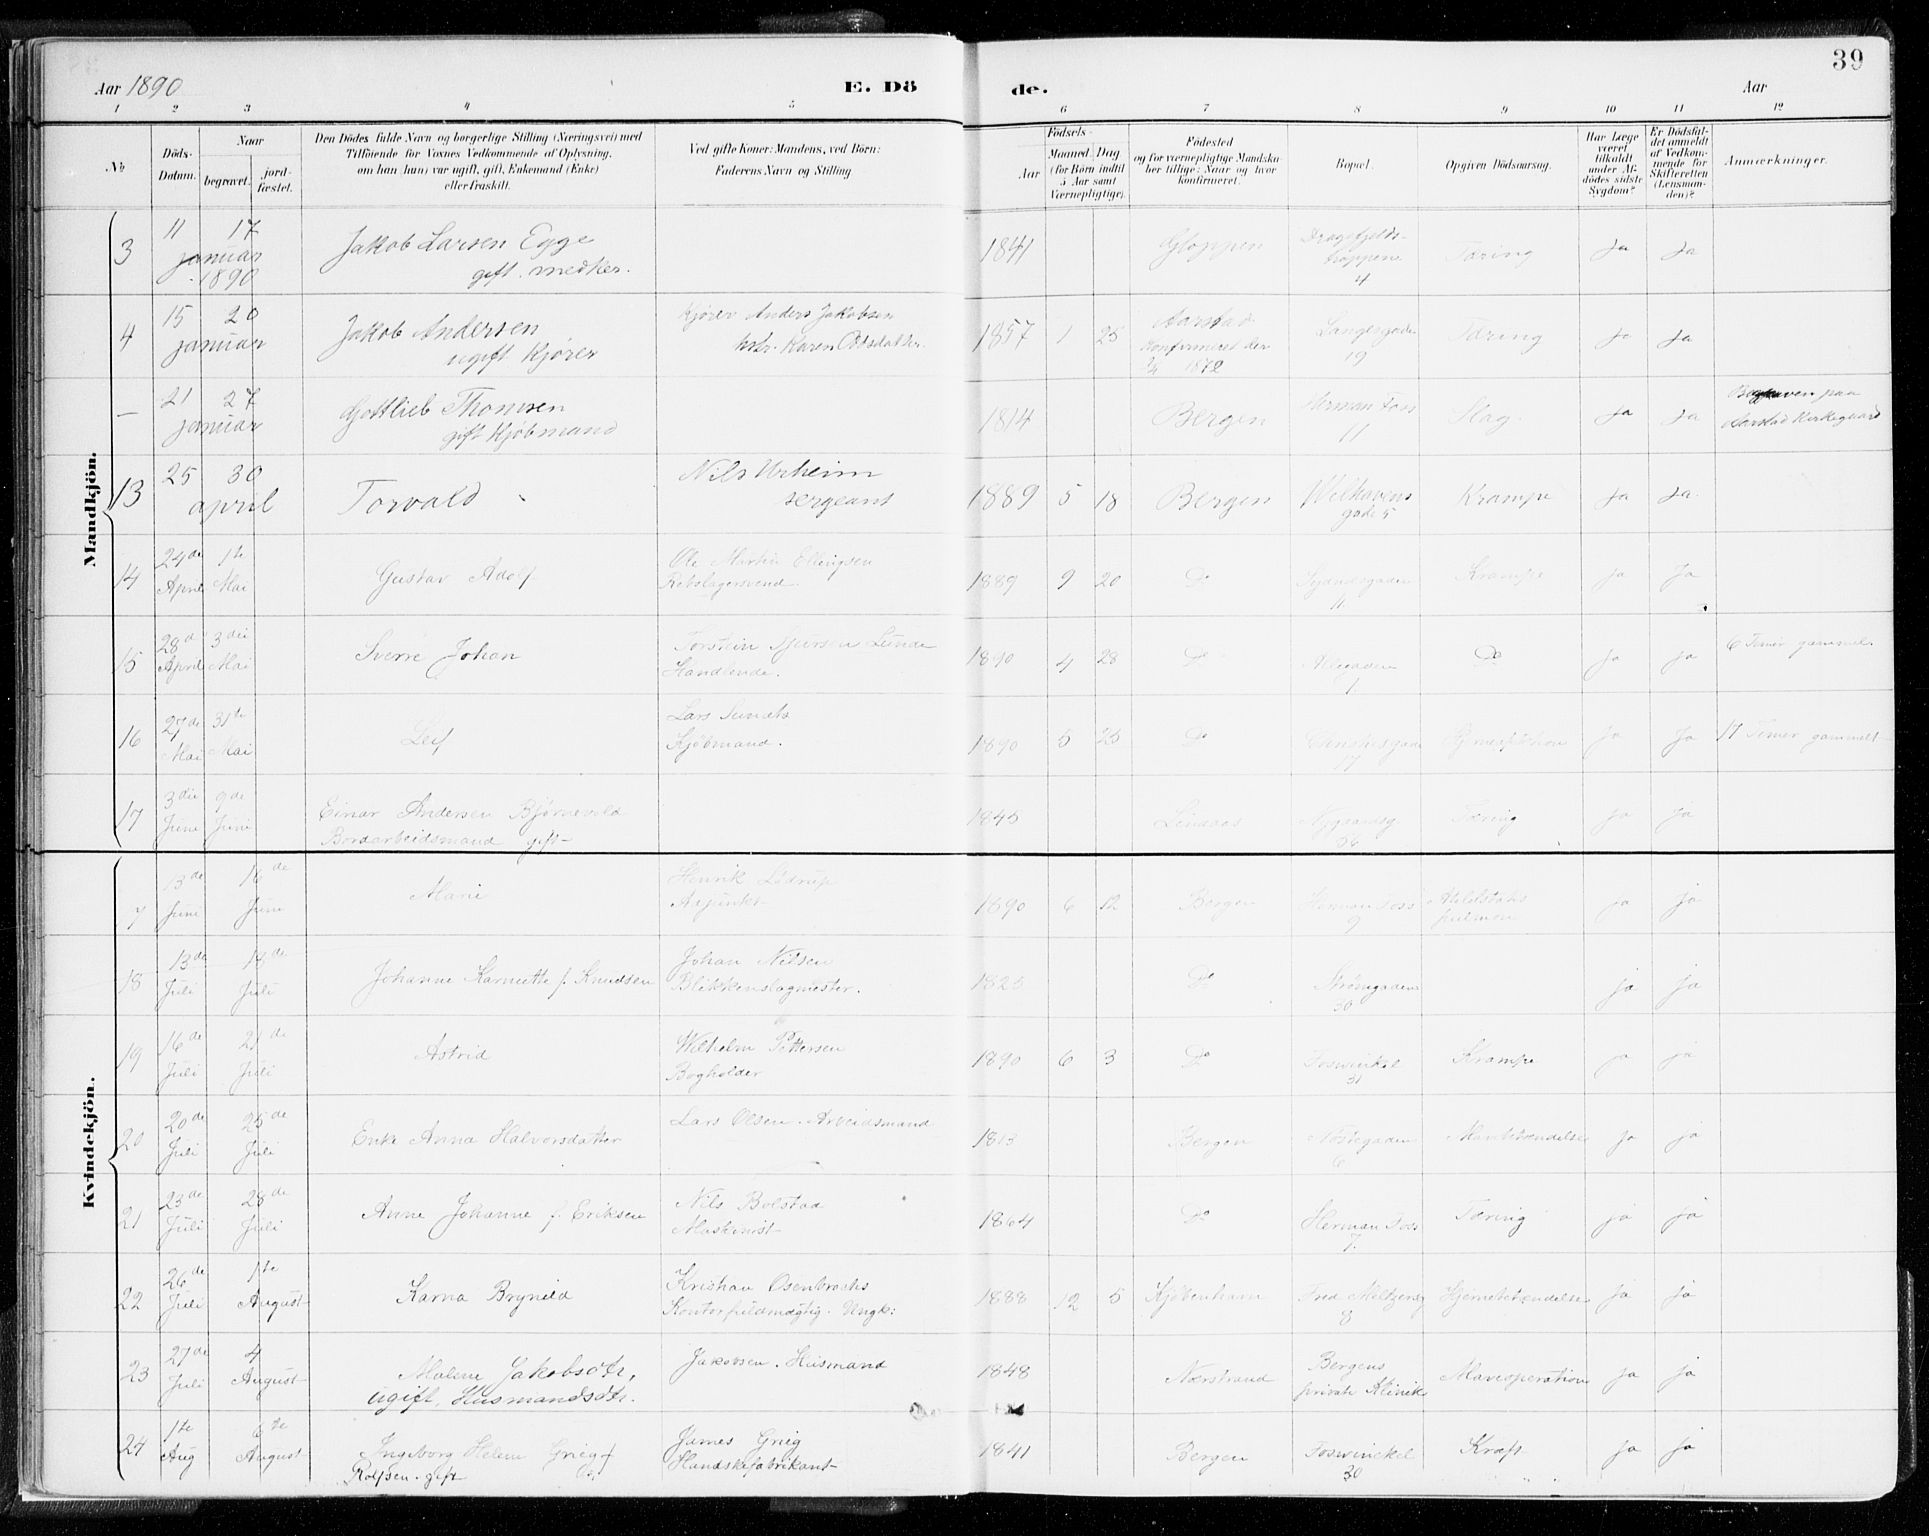 39
Aar 1890
E. Dö
de.
Aar
1 2 3 4 5 6 7 8 9 10 11 12
No
Döds-
Datum.
Naar
begravet.
jord-
fæstet.
Den Dödes fulde Navn og borgerlige Stilling (Næringsvei) med
Tilföiende for Voxnes Vedkommende af Oplysning,
om han (hun) var ugift, gift, Enkemand (Enke)
eller fraskilt.
Ved gifte Koner: Mandens, ved Börn:
Faderens Navn og Stilling
Födsels-
Aar
Maaned
Dag
(for Börn indtil
5 Aar samt
Værnepligtige).
Födested
og for værnepligtige Mandska-
ber tillige: Naar og hvor
konfirmeret.
Bopæl.
Opgiven Dödsaarsag.
Har Læge
været
tilkaldt
under Af-
dödes sidste
Sygdom?
Er Dödsfal-
det anmeldt
af Vedkom-
mende for
Skifteretten
(Lensman-
den)?
Anmærkninger.
Mandkjön.
3 11 17
januar
1890
Jakob Larsen Egge
gift.
1841 Gloppen
4
Tæring Ja Ja
4 15 20
januar
Jakob Andersen
ugift Kjører
Kjører Anders Jakobsen
Karen
1857 1 25
Aarstad
Konfirmeret den
1872
19
Tæring Ja Ja
– 21 27
januar
Gottlieb Thomsen
gift Kjøbmand
1814 Bergen
Herman Foss
11
Slag Ja Ja
Begraven paa
Aarstad Kirkegaard
13 25 30
april
Torvald
Nils Urheim
sergeant
1889 5 18 Bergen
Welhavens
gade 5
Krampe Ja Ja
14 24de 1te
April Mai
Gustav Adolf
Ole Martin Ellingsen
Rebslagersvend
1889 9 20 Do
Krampe Ja Ja
15 28de 3die
April Mai
Sverre Johan
Torstein Lunde
Handlende.
1890 4 28 Do
Allegaden
1
Do Ja Ja
6 Timer gammel.
16 27de 31te
Mai Mai
Leif
Lars
Kjøbmand.
1890 5 25 Do
Christiesgade
17
Ja Ja
17 Timer gammelt
17 3die 9de
Juni Juni
Einar Andersen Bjørnevold
Bordarbeidsmand gift
1845 Lindaas
Nygaardsg
36
Tæring Ja Ja
Kvindekjön.
7 13de 16de
Juni Juni
Marie
Henrik Lødrup
Adjunkt
1890 6 12 Bergen
Herman Foss
9
pulmon
ja ja
18 13de 17de
Juli Juli
Johanne f. Knudsen
Johan Nilsen
Blikkenslagmester.
1825 Do
Strømgaden
30
ja ja
19 16de 21de
Juli Juli
Astrid
Wilhelm Pettersen
Bogholder
1890 6 3 Do
Foswinkel
31
Krampe ja ja
20 20de 25de
Juli Juli
Enke Anna Halvorsdatter
Lars Olsen. Arbeidsmand
1813 Bergen
Nøstegaden
6
ja ja
21 23de 28de
Juli Juli
Anne Johanne f. Eriksen
Nils Bolstad
Maskinist
1864 Do
Herman Foss
7.
Tæring ja ja
22 26de 1te
Juli August
Karna Brynild
Kristian Osenbrochs
Kontorfuldmægtig. Ungk:
1888 12 5 Kjøbenhavn
Fred Meltzersg
8
Hjernebetændelse ja ja
23 27de 4
Juli August
Malene Jakobsdtr,
ugift, Husmandsdtr.
Jakobsen. Husmand
1848 Nærstrand
Bergens
private Klinik
Maveoperation ja ja
24 1te 6te
Aug August
Ingeborg Helene Grieg f
Rolfsen. gift
James Grieg
Handskefabrikant
1841 Bergen
Foswinckel
30
Kræft ja ja